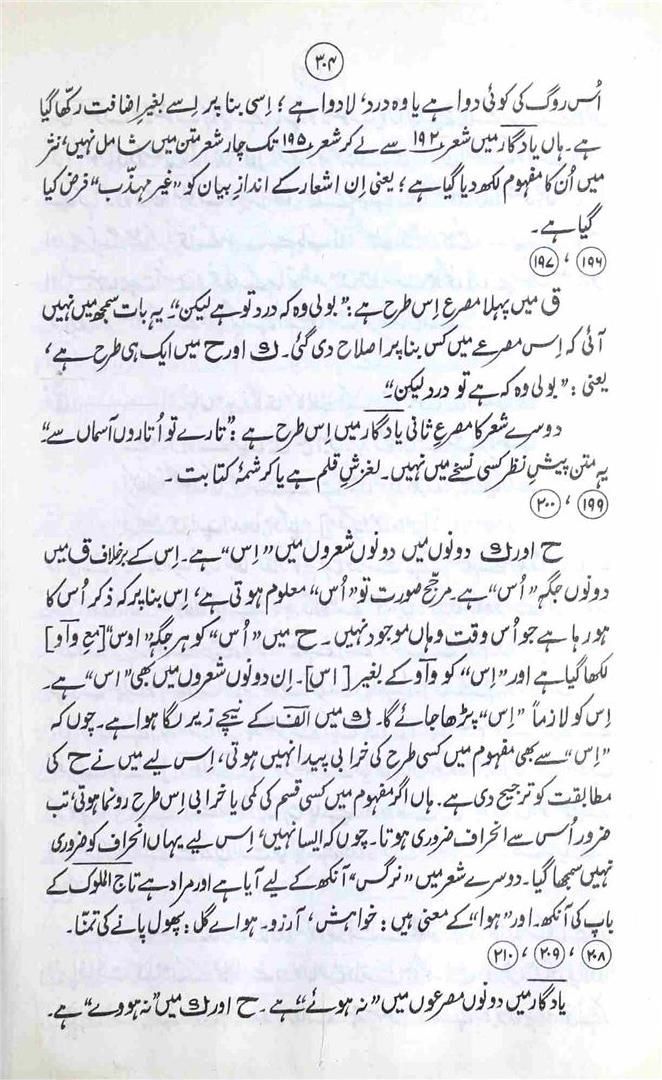 ۳۰۴
اُس روگ کی کوئی دوا ہے یا وہ درد، لادوا ہے ؛ اِسی بنا پر اِسے بغیرِ اضافت رکھّا گیا
ہے۔ ہاں یادگار میں شعر ۱۹۲ سے لے کر شعر ۱۹۵ تک چار شعر متن میں شامل نہیں، نثر
میں اُن کا مفہوم لکھ دیا گیا ہے ؛ یعنی اِن اشعار کے اندازِ بیان کو ”غیر مہذّب“ فرض کیا
گیا ہے۔
۱۹۶ ، ۱۹۷
ق میں پہلا مصرع اِس طرح ہے : ”بولی وہ کہ درد تو ہے لیکن“۔ یہ بات سمجھ میں نہیں
آئی کہ اِس مصرعے میں کس بنا پر اصلاح دی گئی۔ ک اور ح میں ایک ہی طرح ہے ،
یعنی : ”بولی وہ کہ ہے تو درد لیکن“۔
دوسرے شعر کا مصرعِ ثانی یادگار میں اِس طرح ہے : ”تارے تو اُتاروں آسماں سے“
یہ متن پیشِ نظر کسی نسخے میں نہیں۔ لغزشِ قلم ہے یا کرشمۂ کتابت۔
۱۹۹ ، ۲۰۰
ح اور ک دونوں میں دونوں شعروں میں ”اِس“ ہے۔ اِس کے برخلاف ق میں
دونوں جگہ ”اُس“ ہے۔ مرجّح صورت تو ”اُس“ معلوم ہوتی ہے، اِس بنا پر کہ ذکر اُس کا
ہو رہا ہے جو اُس وقت وہاں موجود نہیں۔ ح میں ”اُس“ کو ہر جگہ ”اوس“ [مع واو]
لکھا گیا ہے اور ”اِس“ کو واو کے بغیر [اس]۔ اِن دونوں شعروں میں بھی ”اس“ ہے۔
اِس کو لازماً ”اِس“ پڑھا جائے گا۔ ک میں الف کے نیچے زیر لگا ہوا ہے۔ چوں کہ
”اِس“ سے بھی مفہوم میں کسی طرح کی خرابی پیدا نہیں ہوتی، اِس لیے میں نے ح کی
مطابقت کو ترجیح دی ہے۔ ہاں اگر مفہوم میں کسی قسم کی کمی یا خرابی اِس طرح رونما ہوتی، تب
ضرور اُس سے انحراف ضروری ہوتا۔ چوں کہ ایسا نہیں، اِس لیے یہاں انحراف کو ضروری
نہیں سمجھا گیا۔ دوسرے شعر میں ”نرگس“ آنکھ کے لیے آیا ہے اور مراد ہے تاج الملوک کے
باپ کی آنکھ۔ اور ”ہوا“ کے معنی ہیں : خواہش، آرزو۔ ہواے گل : پھول پانے کی تمنّا۔
۲۰۸ ، ۲۰۹ ، ۲۱۰
یادگار میں دونوں مصرعوں میں ”نہ ہوئے“ ہے۔ ح اور ک میں ”نہ ہووے“ ہے۔